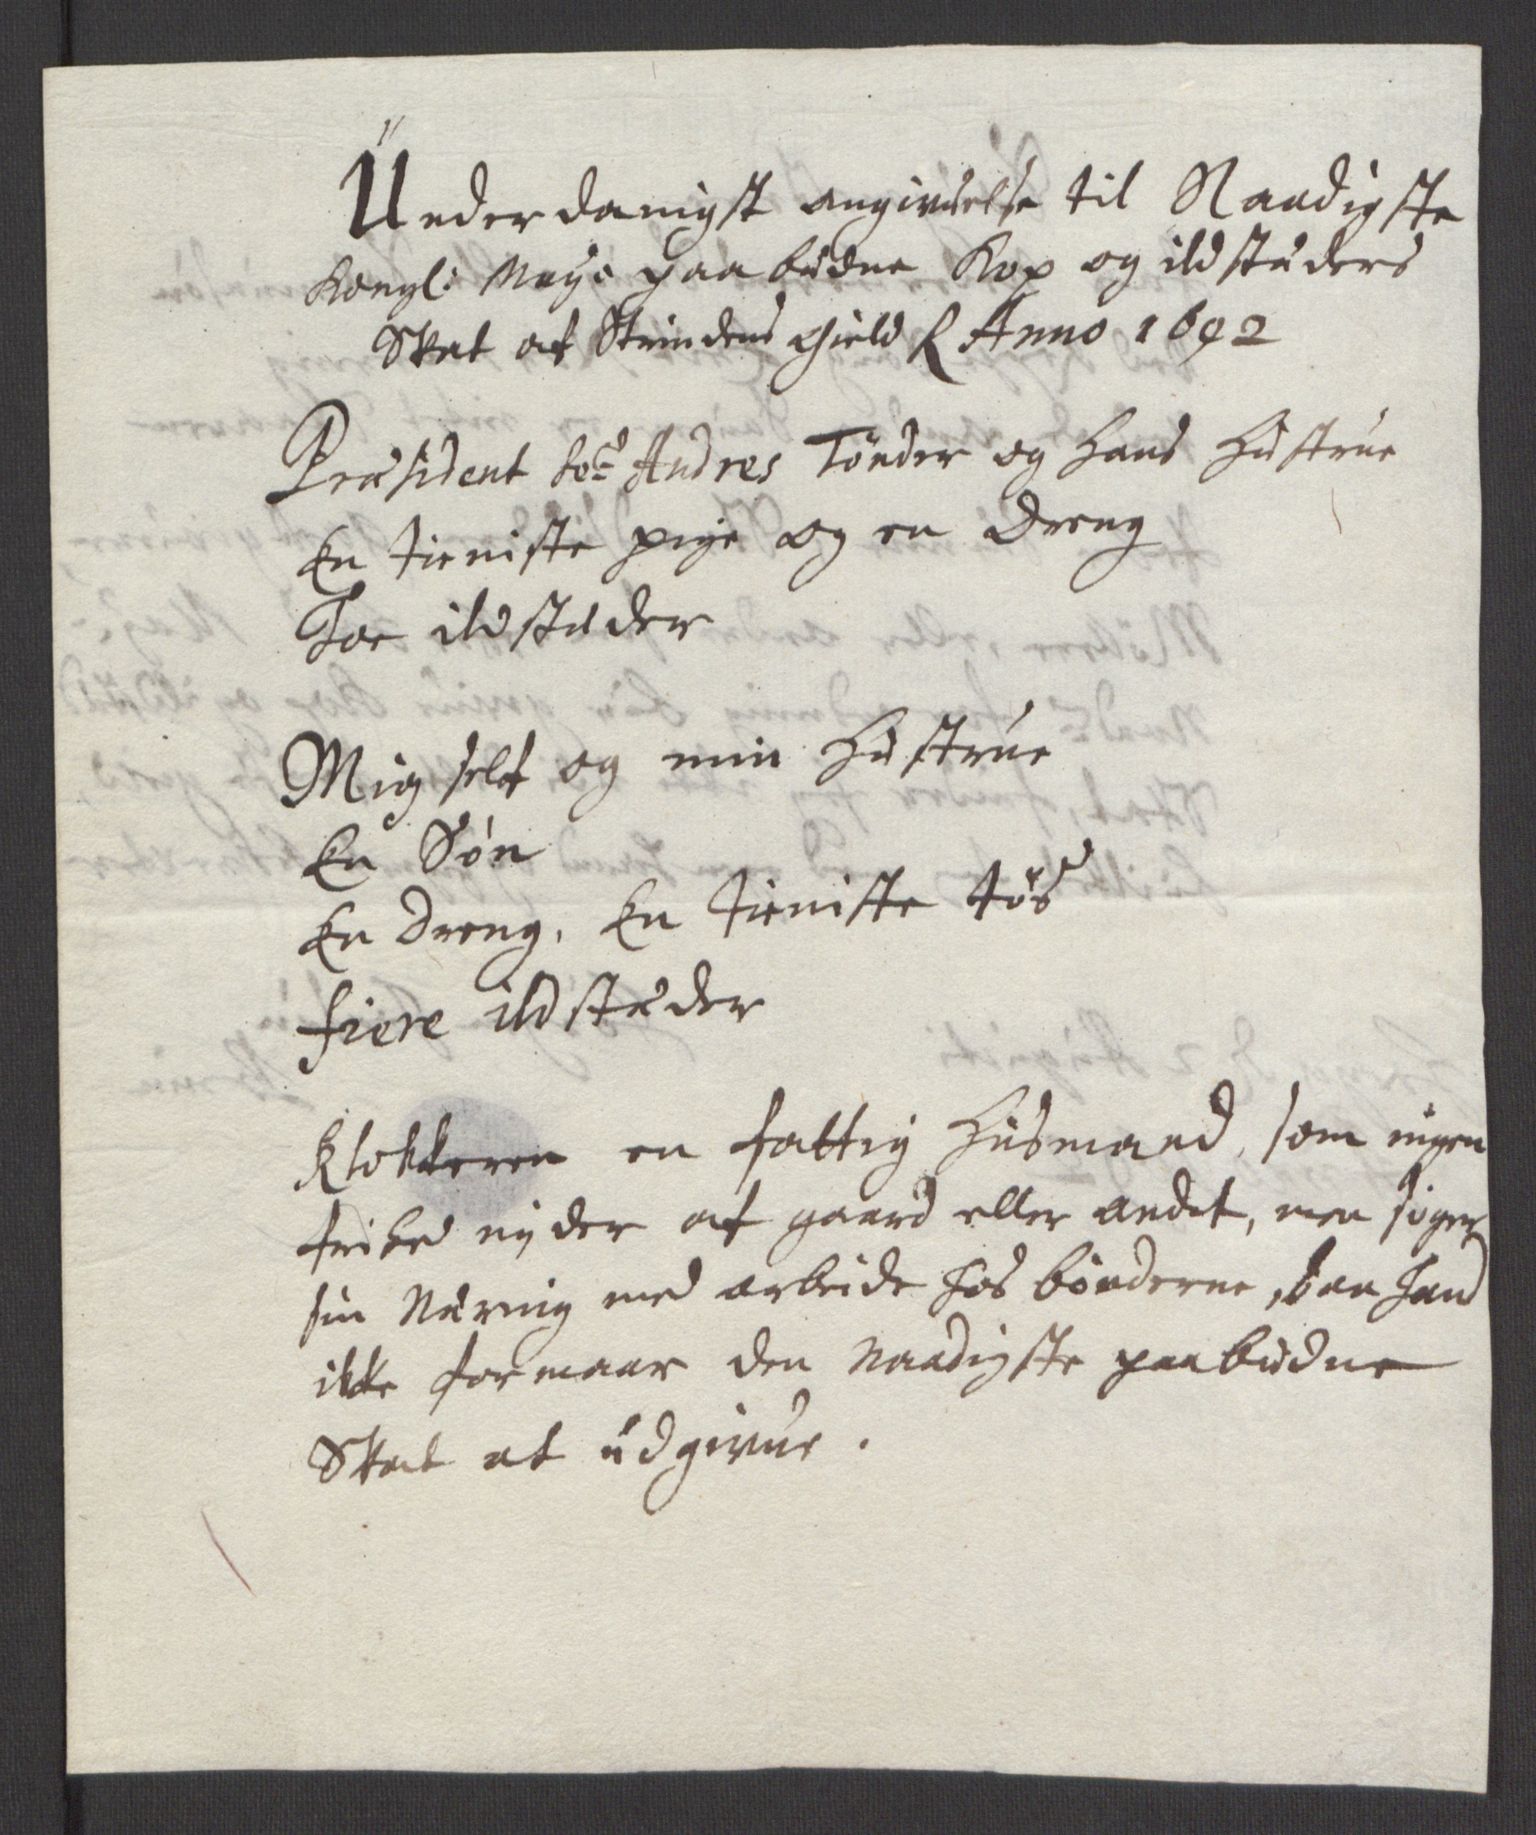 Underdanigst angivuelse til Naadigste
Kongl: Mayß paabudne Kop og ildstæders
Skat af Strindens Gield Anno 1692
Præsident Andres Tönder og Hans Hustrue
En tieniste pige og en Dreng
Toe ildstæder
Mig self og min Hustrue
En Sön
En Dreng, En tieniste tös
fiere ildstæder
Klokkeren en fattig Husmand, som ingen
frihed nyder af gaard eller andet, men söger
sin Næring med arbeide hos bönderne, saa hand
ikke formaar den Naadigste paabudne
Skat at udgivue.